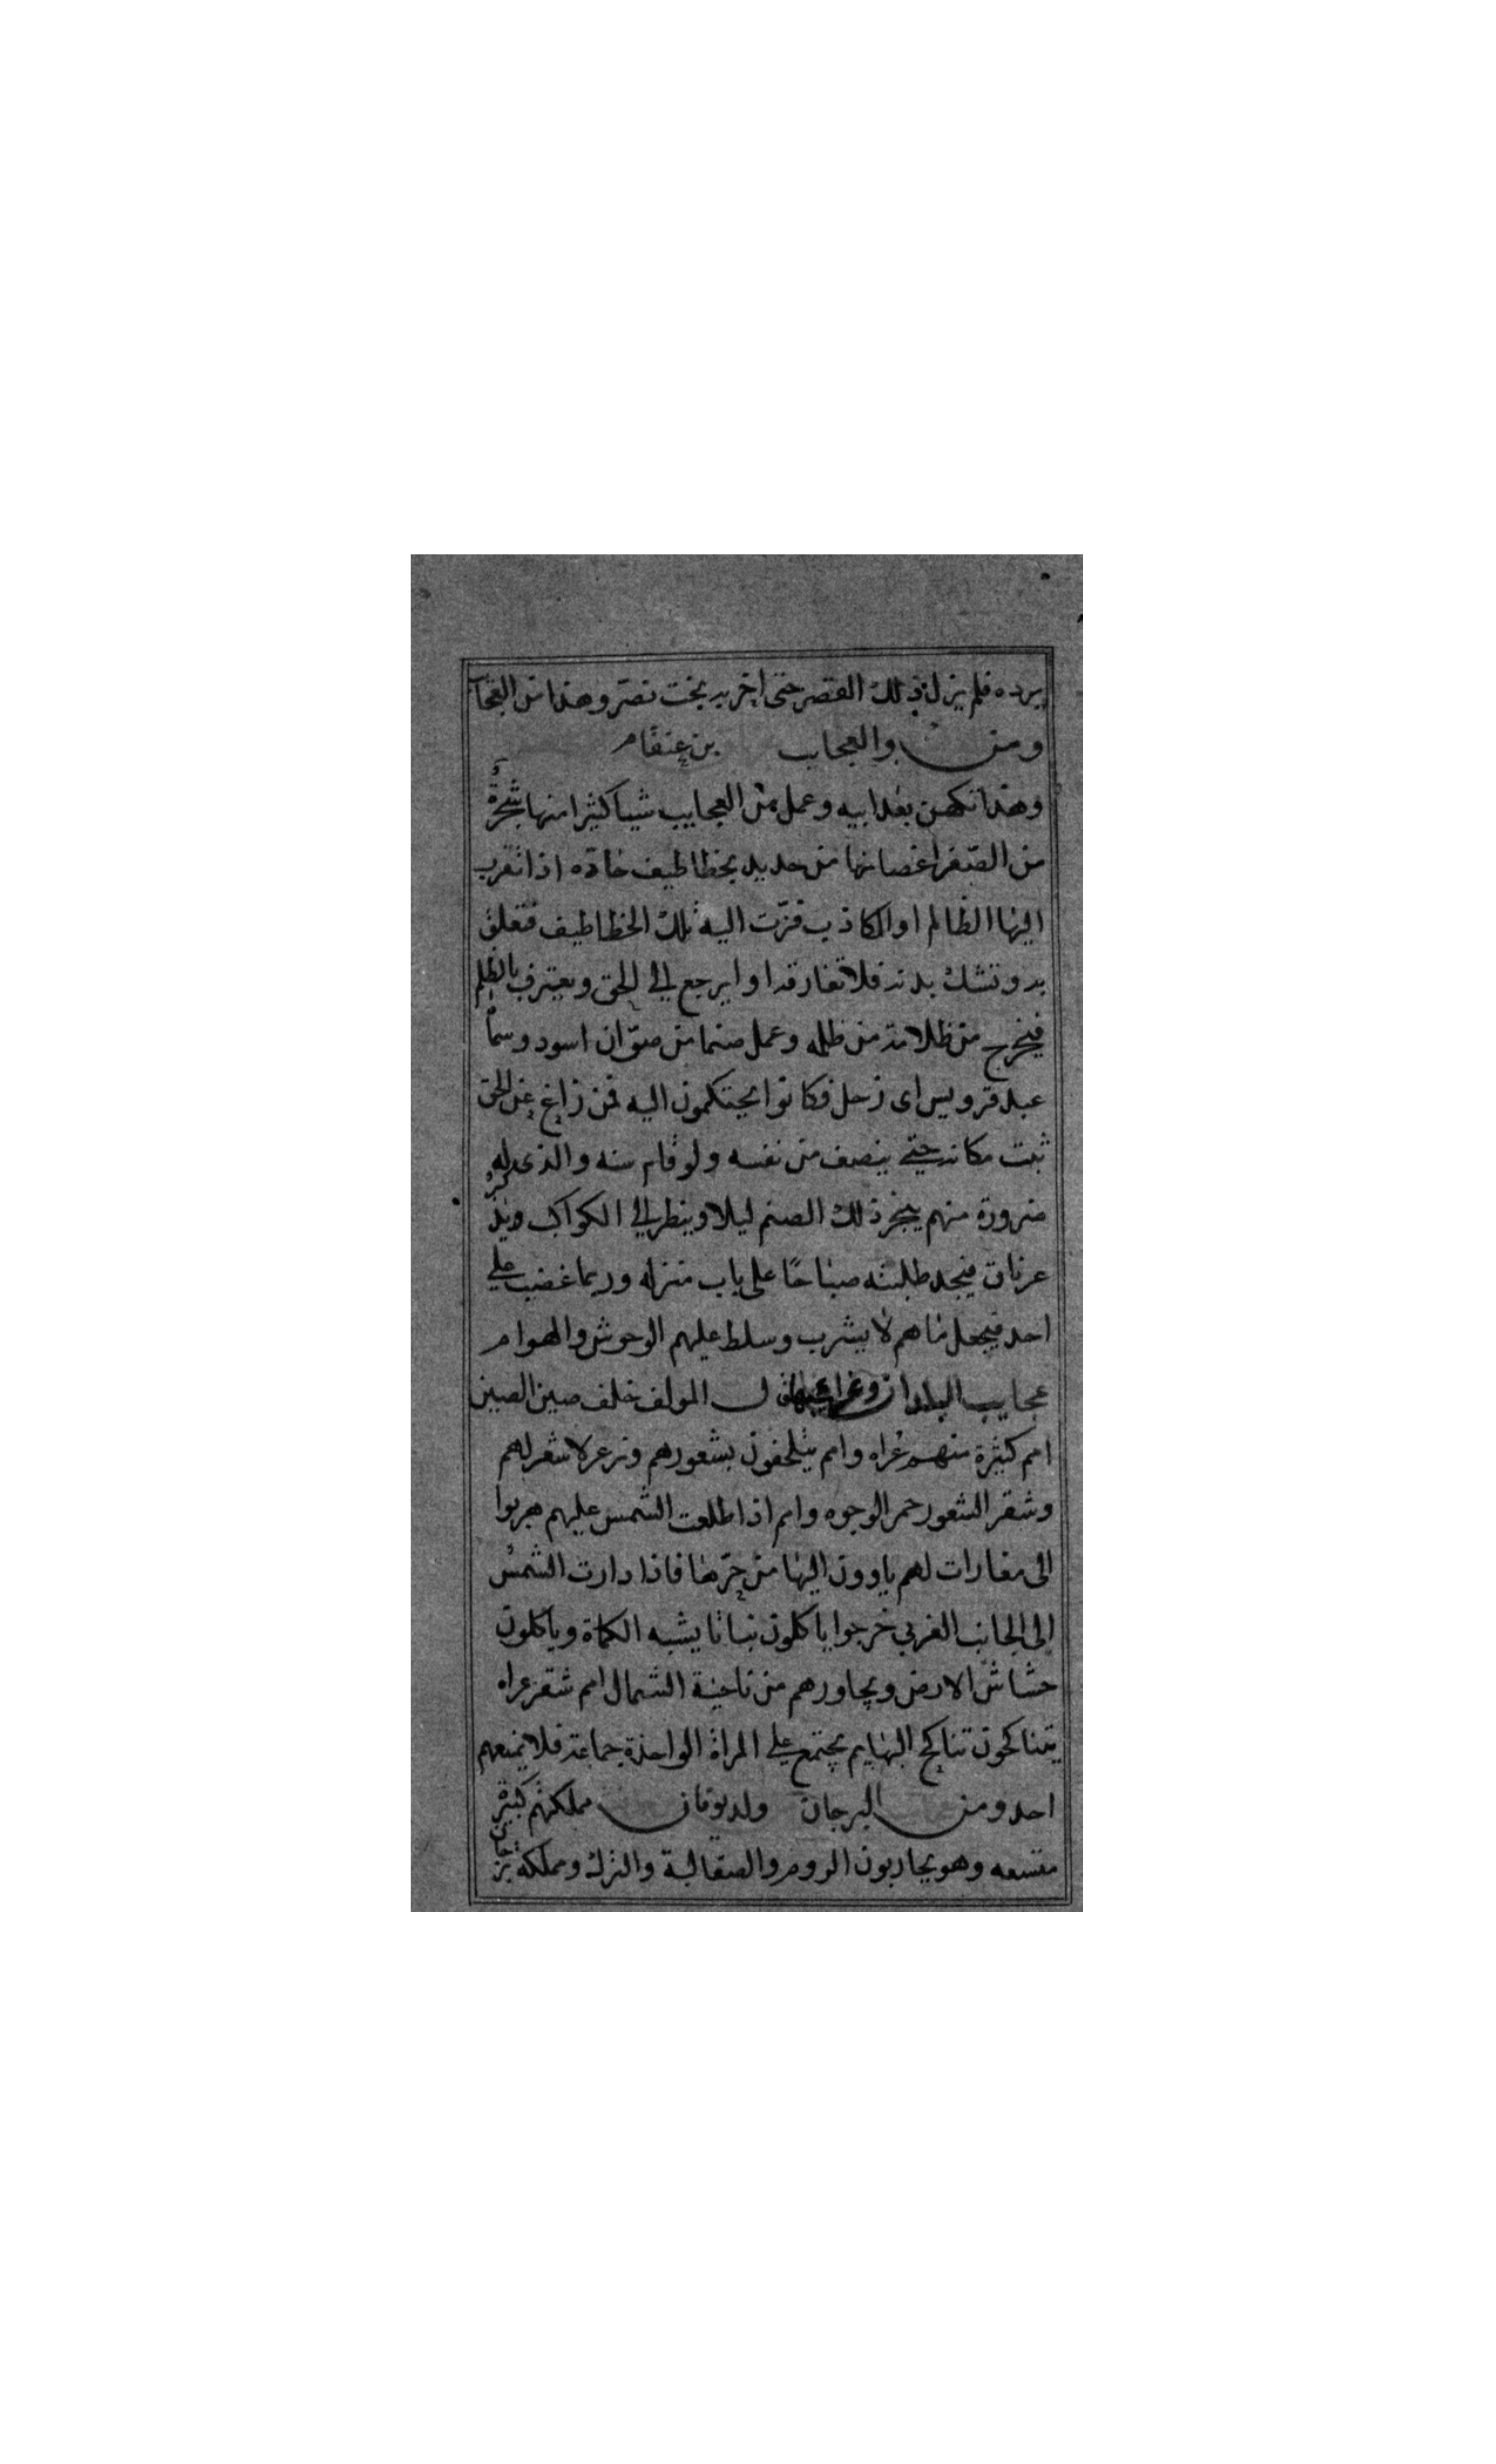 يرده فلم يزل ذلك القصر حتى اخربه بخت نصر وهذا من العجاب
ومن والعجاب بن عنقام
وهذا تكهن بعد ابيه وعمل من العجايب شيا كثيرا منها شجرة
من الصفر اغصانها من حديد بخطاطيف حادّه اذا تقرب
اليها الظالم او الكاذب فزت اليه تلك الخطاطيف فتعلق
به وتشك بدنه فلا تفارقه او ايرجع الى الحق ويعترف بالظلم
فيخرج من ظلامته من ظلمه وعمل صنما من صوّان اسود وسما
عبد قرويس اى زحل فكانوا يحتكمون اليه فمن زاغ عن الحق
ثبت مكانه حتى ينصف من نفسه ولو قام سنه والذى له
ضرورة منهم يبخر ذلك الصنم ليلا وينظر الى الكواكب ويذكر
عرنان فيجد طلبته صباحًا على باب منزله وربما غضب على
احد فيجعل ماهم لا يشرب وسلط عليهم الوحوش والهوام
عجايب البلدان وغرايبها قال المولف خلف صين الصين
امم كثيرة منهم عراه وامم يتلحفون بشعورهم وزعر لا شعر لهم
وشقر الشعور حمر الوجوه وامم اذا طلعت الشمس عليهم هربوا
الى مغارات لهم ياوون اليها من حرّها فاذا دارت الشمس
الى الجانب الغربي خرجوا ياكلون نباتا يشبه الكماة وياكلون
حشاش الارض ويجاورهم من ناحية الشمال امم شقر عراه
يتناكحون تناكح البهايم يجتمع على المراة الواحدة جماعة فلا يمنعهم
احد ومن البرجان ولد يونان مملكتهم كبيرة
متسعه وهو يحاربون الروم والصقالبة والترك ومملكه برجان